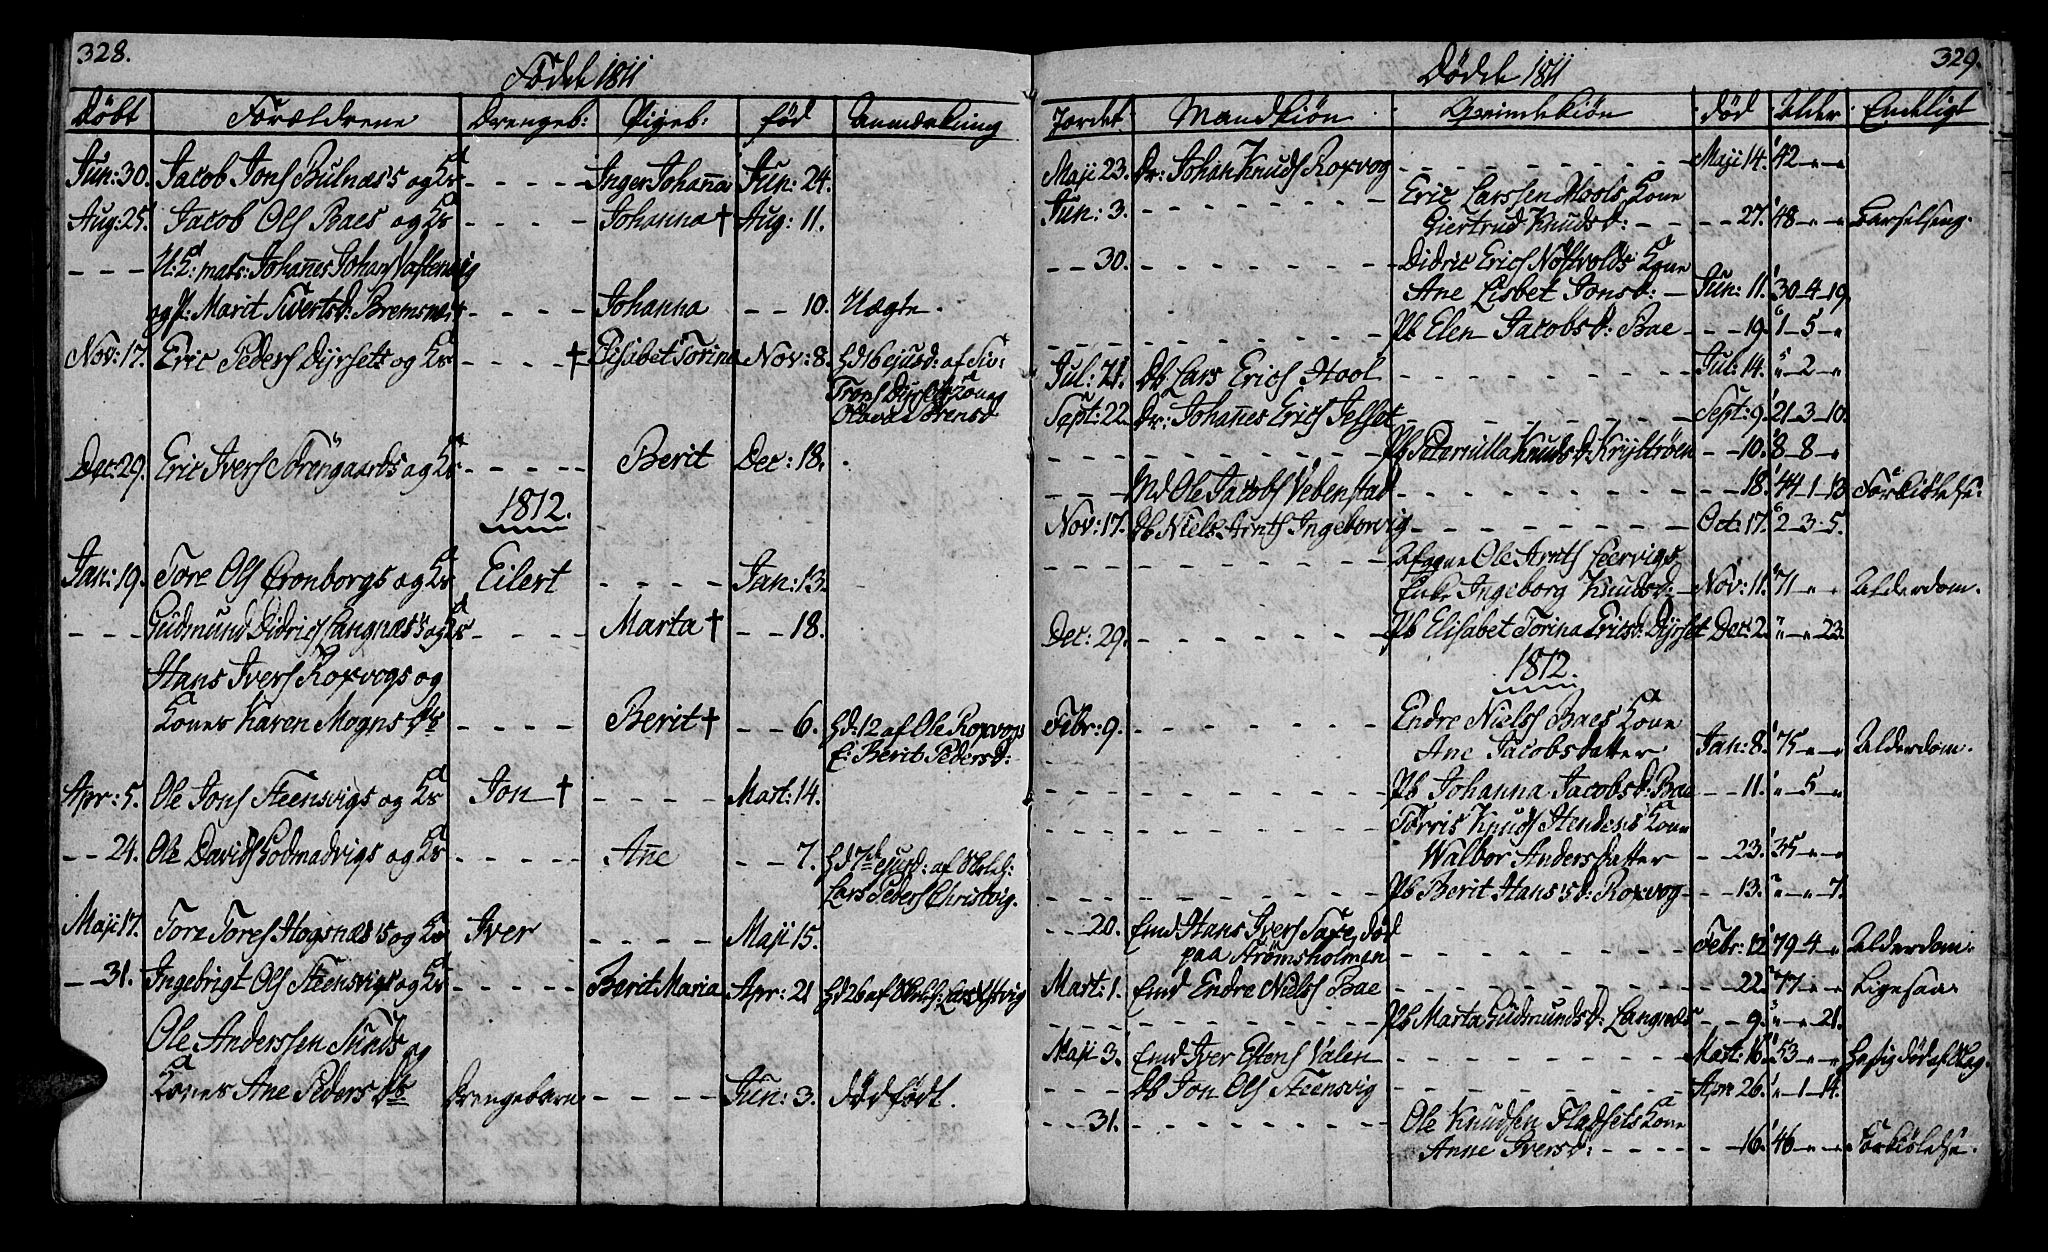 328.
Födde 1811
Döbt Forældrene Drengeb: Pigeb: född Anmærkning
Jun: 30. Jacob Jons Bulnæs's og K - - - - Inger Johanna Jun: 24.
Aug: 25. Jacob Ols Baes og K - - - - Johanna † Aug: 11.
- - - U: K: mats: Johannes Johans Vaftenvig
og P: Marit Siverts d: Bremsnæs - - - - Johanna - - 10. Uægte.
Nov: 17. Eric Peders Dyrsets og K - - - - † Elisabet Torina Nov: 8. Hd 16 ejusd: af
Trons Dyrsets Kone
Olava Sörensd
Dec: 29. Eric Ivers Sörengaards og K - - - - Berit Dec: 18.
1812.
Jan: 19. Tore Ols Cronborgs og K Eilert - - - - Jan: 13.
- - - Gudmund Didrics Langnæs's og K - - - - Marta † - - 18.
Hans Ivers Roxvogs og
Kones Karen Mogns Dtr - - - - Berit † - - 6. Hd: 12 af Ole Roxvogs
E: Berit Pedersd:
Apr: 5. Ole Jons Steensvigs og K Jon † - - - - Mart: 14.
- - 24. Ole Davids Lodmadvigs og K - - - - Anne - - 7. Hd 7de ejusd: af
Lars Peders Christvig.
Maji 17. Tore Tores Hogsnæs's og K Iver - - - - Maji 15.
- - 31. Ingebrigt Ols Steensvigs og K - - - - Berit Maria Apr: 21 Hd 26 af
Ole Anderssen Sunds og
Kones Ane Peders Dtr Drengebarn - - - - Jun: 3. dödfödt.
329.
Dödde 1811
Jordet Mandkiön Qvindekiön död Alder Endeligt
Maji 23. Dr: Johan Knuds Roxvog - - - - Maji 14. 42 - " - "
Jun: 3. - - - - Eric Larssen Hools Kone
Giertrud Knudsd: - - - - 27. 48 - " - " Barselseng.
- - 30. - - - - Didric Erics Nöstvolds Kone
Ane Lisbet Jonsd: - Jun: 11. 30 - 4 - 19.
- - - - Pb Elen Jacobsd: Bae - - - 19. 1 - 5 - "
Jul: 21. Db Lars Erics Hool - - - - Jul: 14. " - 2 - "
Sept: 22. Dr: Johannes Erics Jelset - - - - Sept: 9. 21 - 3 - 10.
- - - - Pb Peternilla Knuds d: Kryströen - - 10. 8 - 8 - "
- - - Md Ole Jacobs Vebenstad - - - - 18. 44 - 1 - 13. Forkiölelse.
Nov: 17. Db Niels Arnts Ingeborvig - - - - Oct: 17. 2 - 3 - 5.
- - - - Afgagne Ole Arnts Leervigs
Enke Ingeborg Knudsd: - Nov: 11. 71 - " - " Alderdom.
Dec: 29. - - - - Pb Elisabet Torina Ericsd: Dyrset Dec: 2. " - " - 23.
1812.
Febr: 9. - - - - Endre Niels Baes Kone
Ane Jacobsdatter Jan: 8. 75 - " - " Alderdom.
- - - - Pb Johanna Jacobs d: Bae - - 11. " - 5 - "
- - - - Torris Knuds Hendens Kone
Walbor Andersdatter - - 23. 35 - " - "
- - - - Pb Berit Hans's d: Roxvog - - - 13. " - " - 7.
- - 20. Emd Hans Ivers Saxe, död
paa Strömsholmen - - - - Febr: 12. 79 - 4 - " Alderdom.
Mart: 1. Emd Endre Niels Bae - - - - 22. 77 - " - " Ligesaa.
- - - - Pb Marta Gudmunds d: Langnæs - - 9. " - " - 21.
Maji 3. Emd Iver Estens Valen - - - - Mart: 16. 53 - " - "
- - - Db Jon Ols Steensvig - - - - Apr: 26. " - 1 - 14.
- - 31. - - - - Ole Knudsen Fladsets Kone
Anne Iversd: - - - - 16. 46 - " - " Forkiölelse.